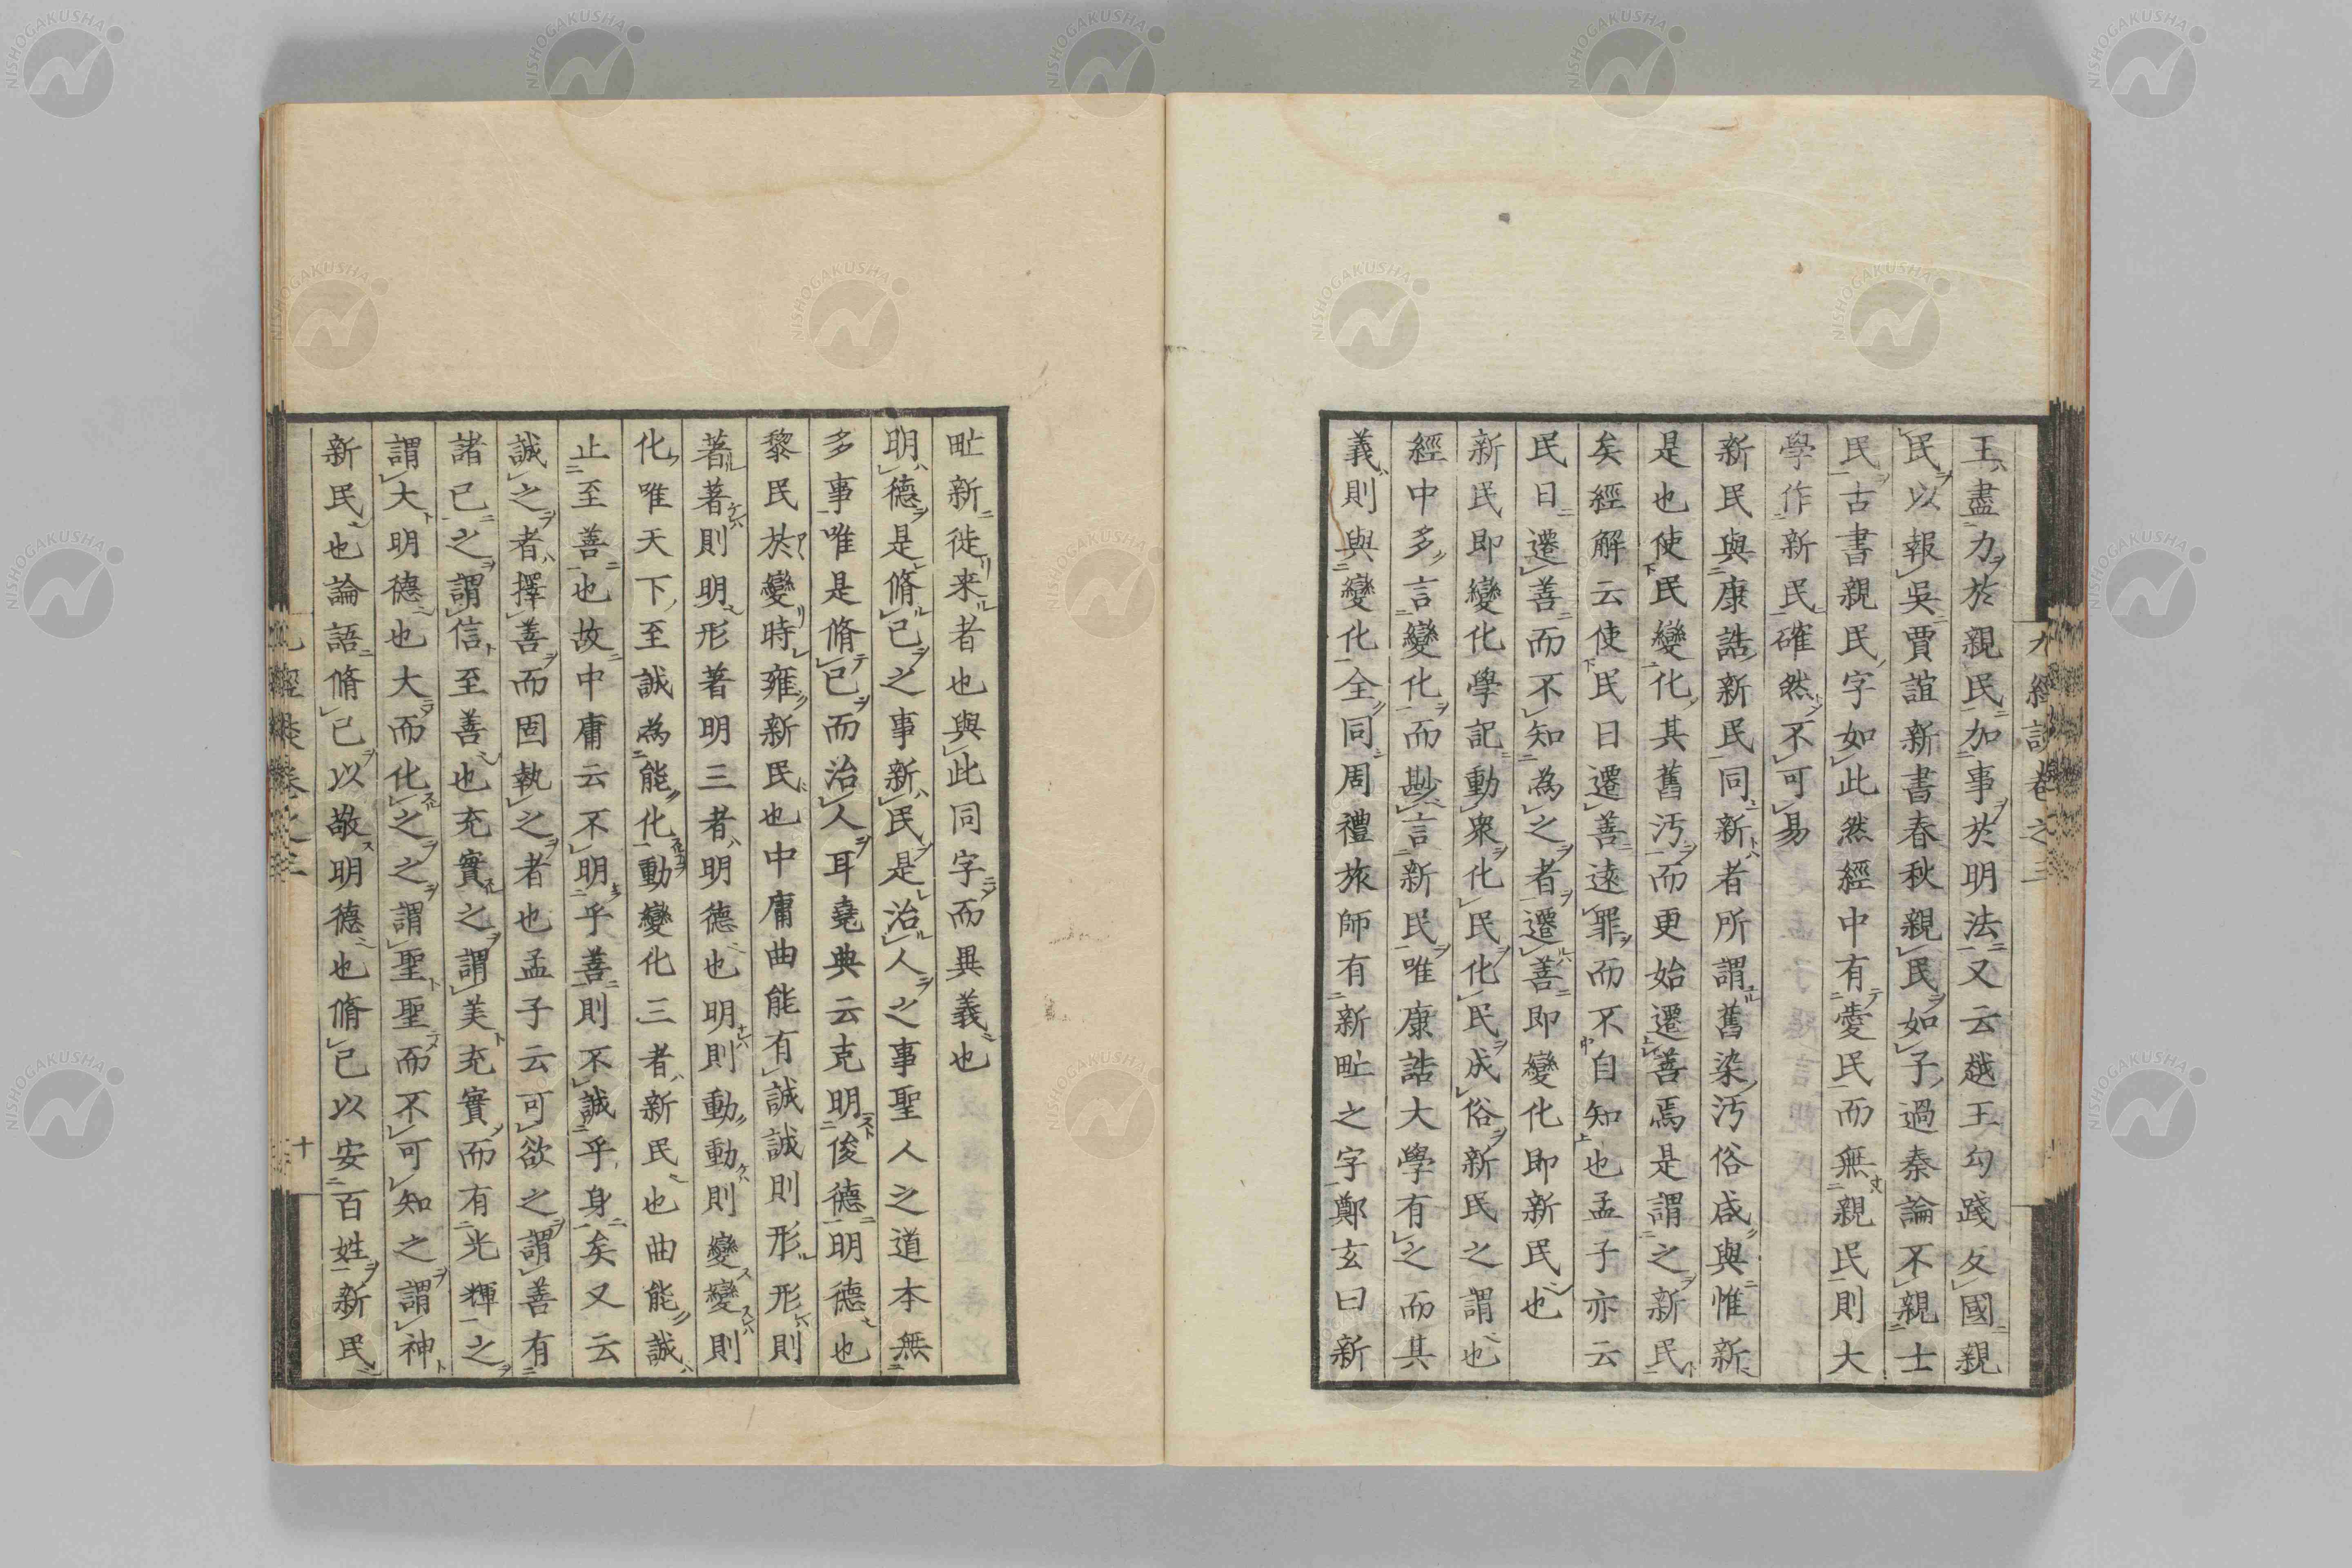 王盡力於親民加事於明法又云越王勾踐反國親
民以報吳賈誼新書春秋親民如子過秦論不親士
民古書親民字如此然經中有愛民而無親民則大
學作新民確然不可易
新民與康誥新民同新者所謂舊染汚俗咸與惟新
是也使民變化其舊汚而更始遷善焉是謂之新民
矣經解云使民日遷善遠罪而不自知也孟子亦云
民日遷善而不知為之者遷善即變化即新民也
新民即變化學記動衆化民化民成俗新民之謂也
經中多言變化而尠言新民唯康誥大學有之而其
義則與變化全同周禮旅師有新甿之字鄭玄曰新
甿新徙来者也與此同字而異義也
明德是脩己之事新民是治人之事聖人之道本無
多事唯是脩己而治人耳堯典云克明俊德明德也
黎民於變時雍新民也中庸曲能有誠誠則形形則
著著則明形著明三者明德也明則動動則變變則
化唯天下至誠為能化動變化三者新民也曲能誠
止至善也故中庸云不明乎善則不誠乎身矣又云
誠之者擇善而固執之者也孟子云可欲之謂善有
諸己之謂信至善也充實之謂美充實而有光輝之
謂大明德也大而化之之謂聖聖而不可知之謂神
新民也論語脩己以敬明德也脩己以安百姓新民
九經談卷之三
十
NISHOGAKUSHA